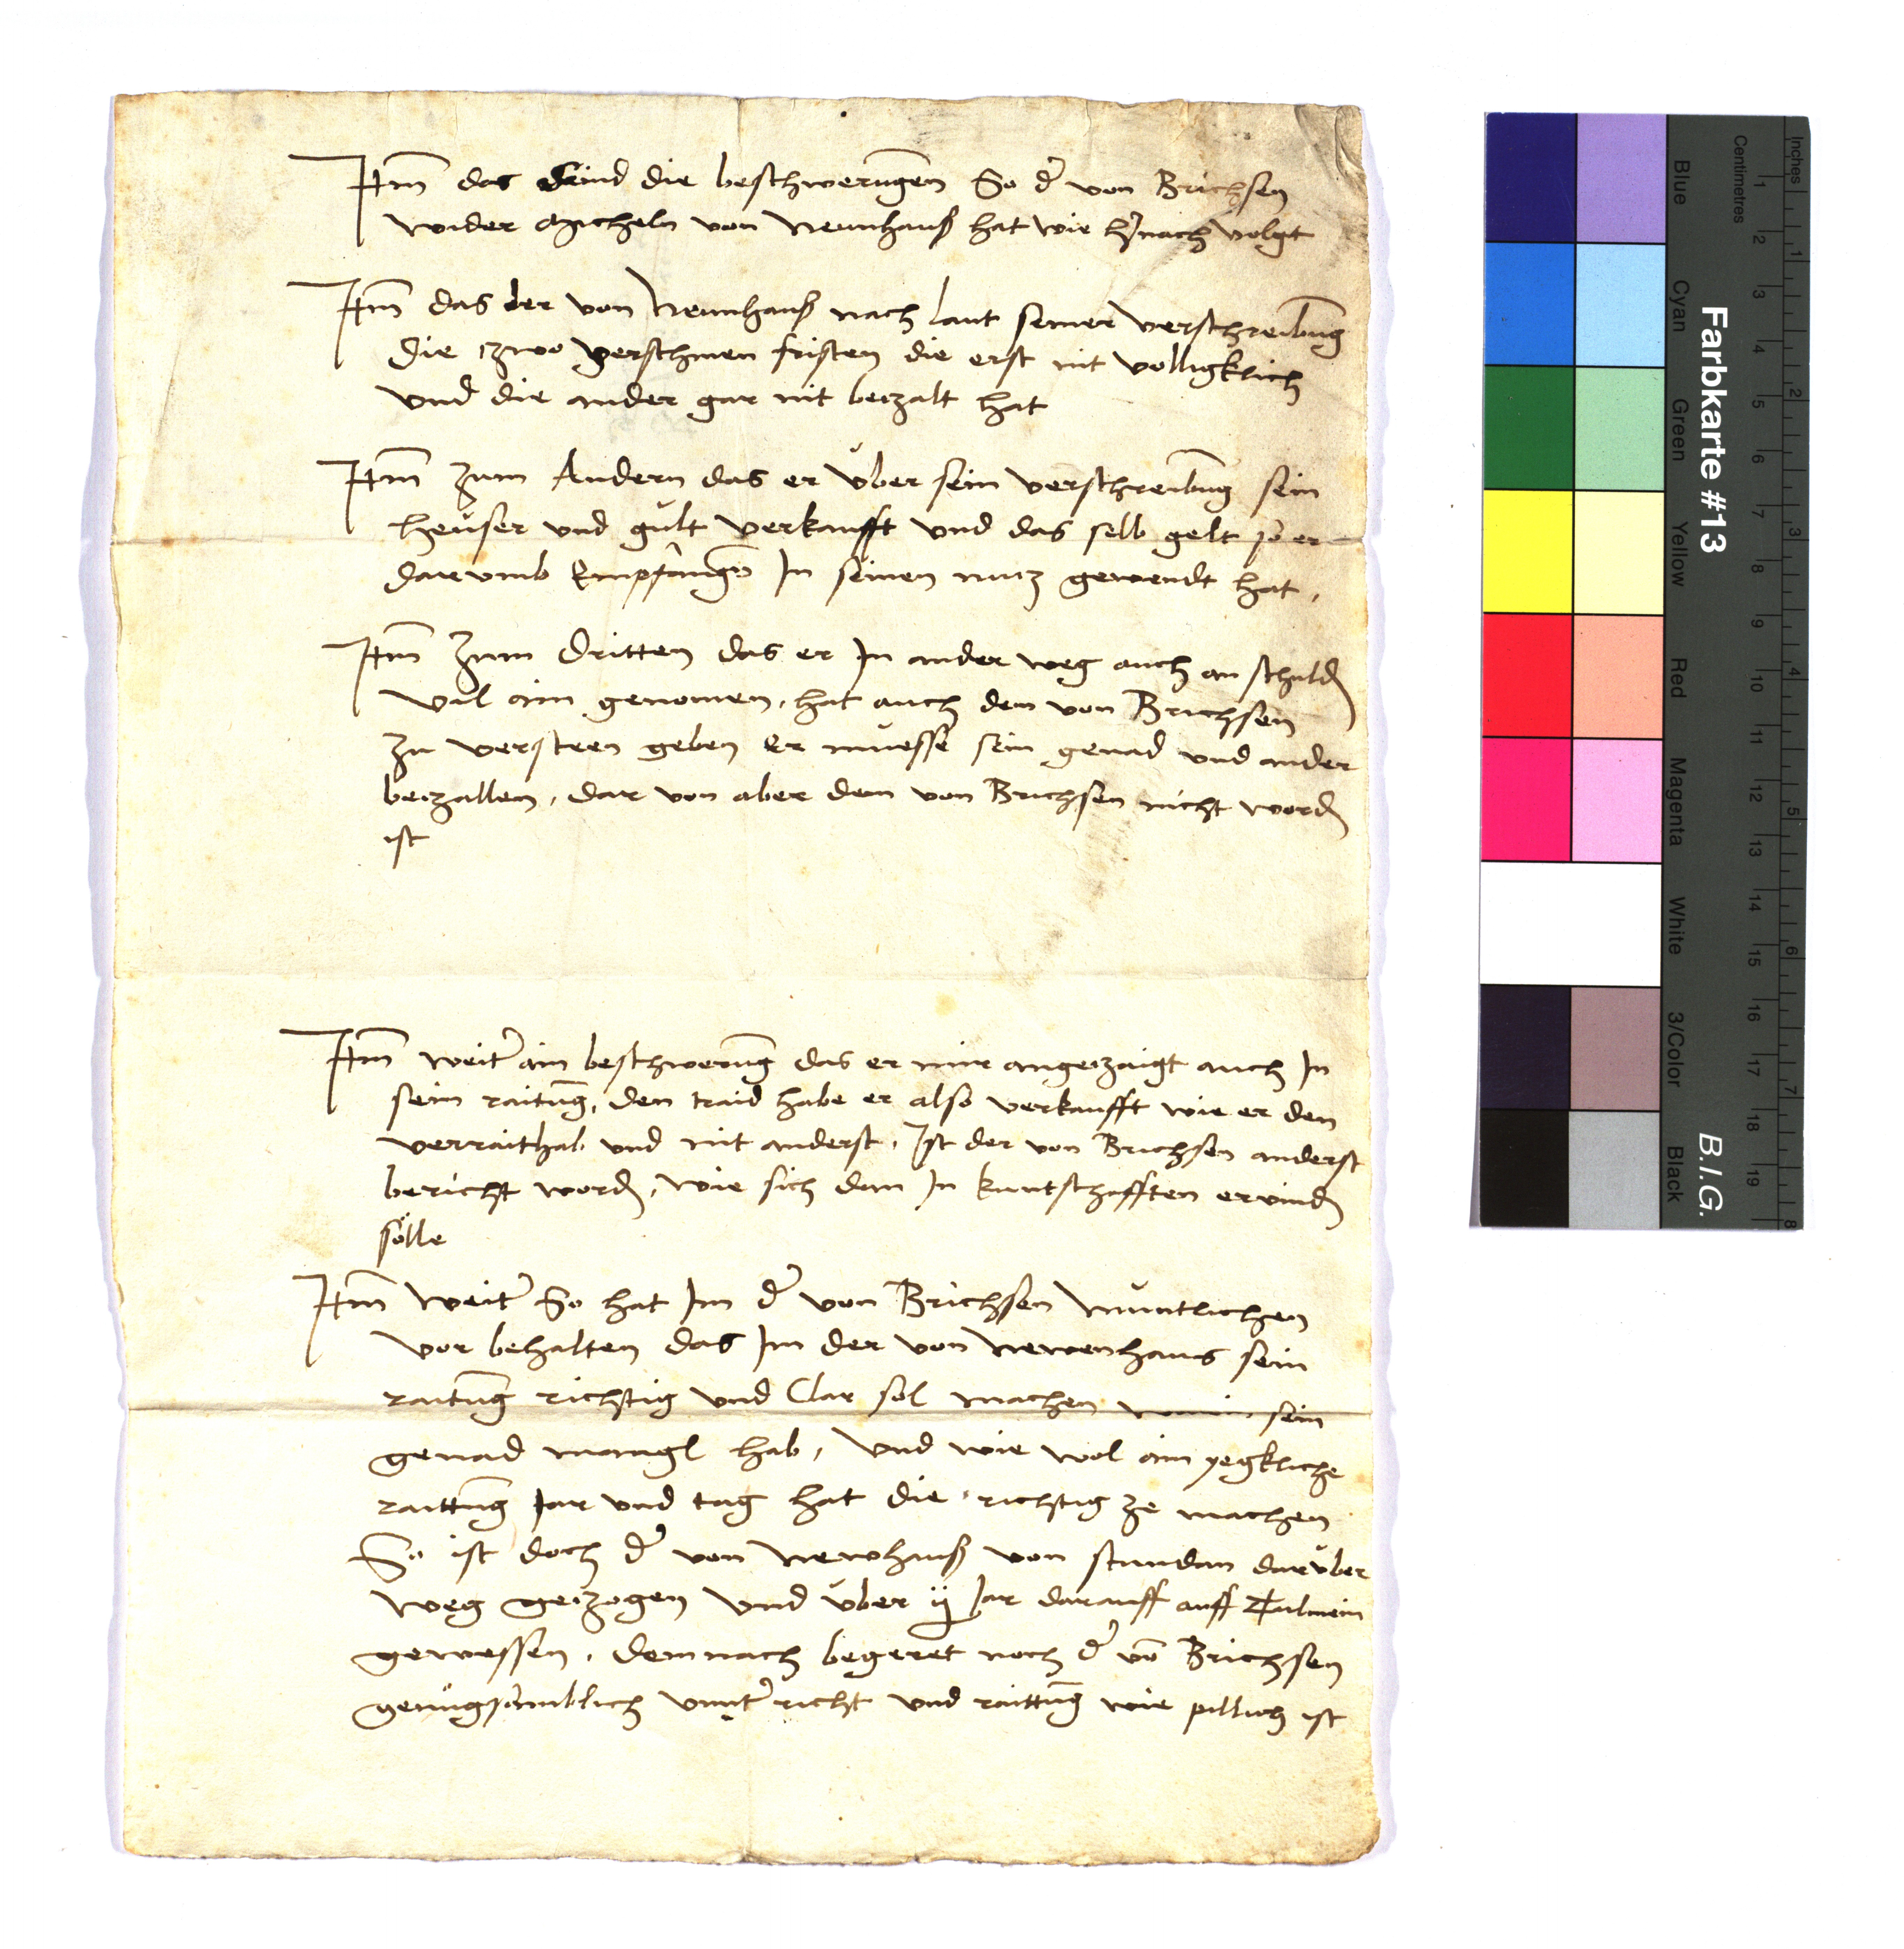 Itm das Sind die beschwerugen So d' von Brichsen
wider Micheln von Newnhauß hat wie h'nach volgt
Itm das der von Newnhauß nach laut seiner verschreibung
die zwo verschinen fristen die erst nit volligklich
und die ander gar nit beczalt hat
Itm zum Andern das er über sein verschreibung sein
heuser und gült verkaufft und das selb gelt so er
darvmb Empfangen In seinen nucz gewendt hat,
Itm zum Dritten das er In ander weg auch an schuldn
vil ain genomen, hat auch dem von Brichsen
zu versteen geben Er muesse sein genad und ander
beczallen, dar von aber dem von Brichsen nicht wordn
ist
Itm weit' ain beschwerug das er mir angeczaigt auch In
sein raitung, den traid habe er also verkaufft wie er den
verraithab und nit anderst, Ist der von Brichsen anderst
bericht wordn, wie sich dan In kuntschafften ervindn
sölle
Itm weit' So hat Im d' von Brichsen muntlichen
vor behalten das Im der von Newenhaus sein
raitung richtig und Clar sol machen sein
genad mangl hab, und wie wol ain yegkliche
raittung Jar und tag hat die richtig ze machen
So ist doch d' von Newhauß von stundan darüber
weg geczogen und über ij Jar darauff auff Tulmein
gewessen, demnach begeret noch d' vo Brichsen
genugsamblich vnnt'richt und raittung wie pillich ist
Farbkarte #13
B.I.G.
Blue
Cyan
Green
Yellow
Red
Magenta
White
3/Color
Black
Centimetres
1 2 3 4 5 6 7 8 9 10 11 12 13 14 15 16 17 18 19
Inches
1 2 3 4 5 6 7 8